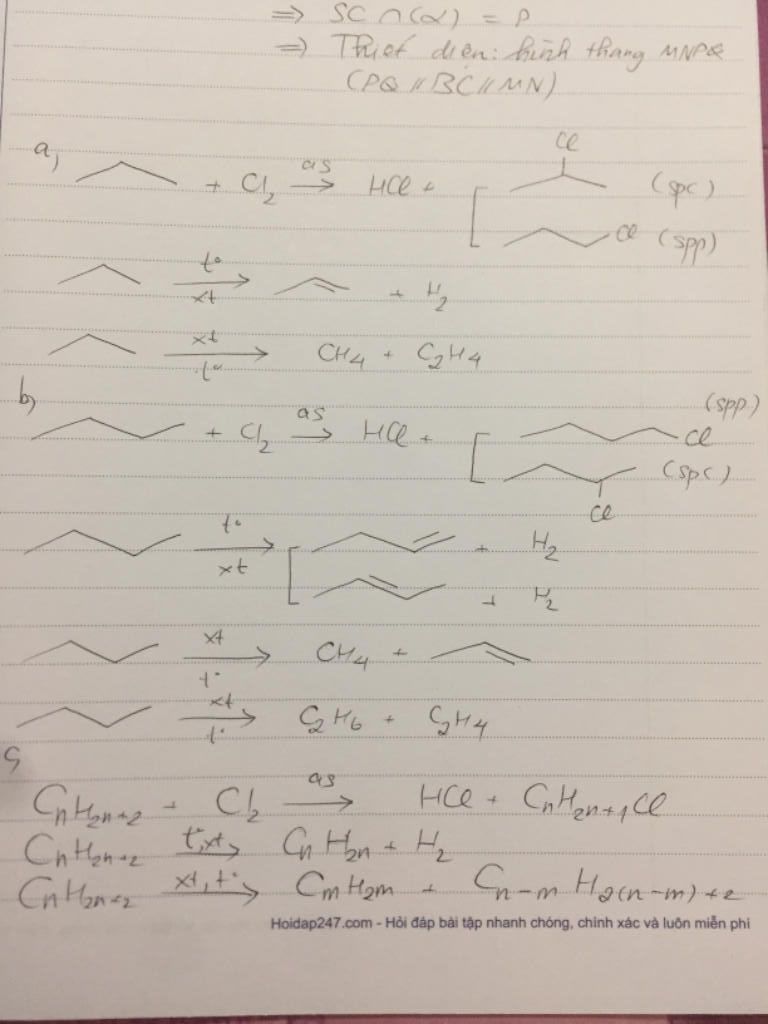 => SC ∩ (α) = P
=> Thiết diện: hình thang MNPQ
(PQ // BC // MN)
a, + Cl₂ as → HCl + [ Cl (spc)
Cl (spp)
t° xt → + H₂
xt t° → CH₄ + C₂H₄
b, + Cl₂ as → HCl + [ Cl (spp)
(spc) Cl
t° xt → [ + H₂
+ H₂
xt t° → CH₄ +
xt t° → C₂H₆ + C₂H₄
c, CₙH₂ₙ₊₂ + Cl₂ as → HCl + CₙH₂ₙ₊₁Cl
CₙH₂ₙ₊₂ t°, xt → CₙH₂ₙ + H₂
CₙH₂ₙ₊₂ xt, t° → CₘH₂ₘ + Cₙ₋ₘH₂₍ₙ₋ₘ₎₊₂
Hoidap247.com - Hỏi đáp bài tập nhanh chóng, chính xác và luôn miễn phí